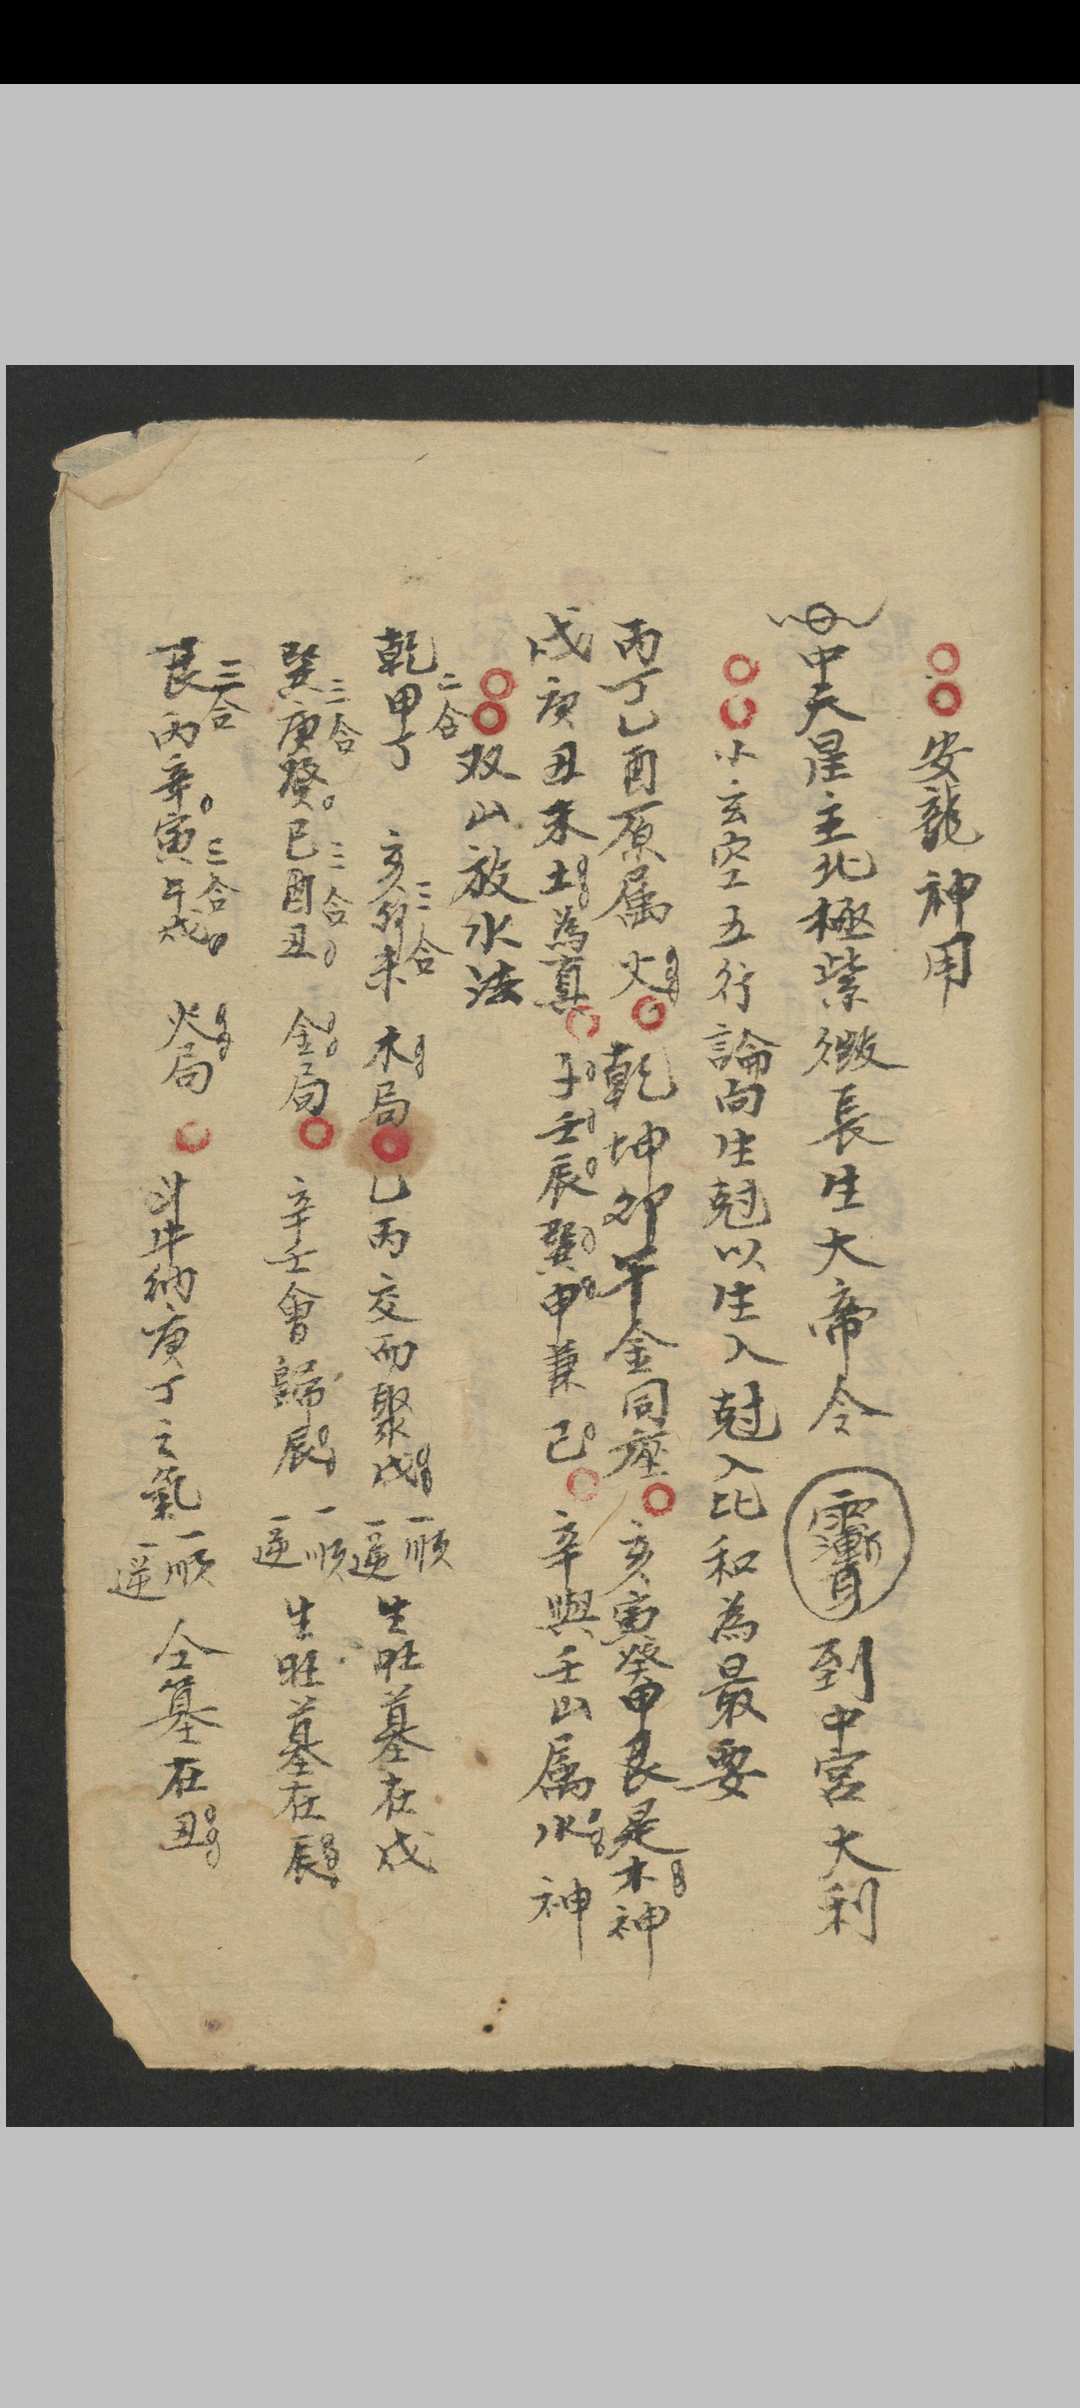 安龍神用
中天星主北極紫微長生大帝令 到中宮大利
小玄空五行論向生尅以生入尅入比和為最要
丙丁乙酉原属火乾坤卯午金同座亥寅癸甲艮是木神
戌庚丑未土為真子壬辰巽申兼己辛與壬山属水神
双山放水法
乾甲丁二合 亥卯未三合 木局 乙丙交而聚戌 一順一逆 生旺墓在戌
巽庚癸三合 巳酉丑三合 金局 辛壬會歸辰 一順一逆 生旺墓在辰
艮丙辛三合 寅午戌三合 火局 斗牛納庚丁之氣 一順一逆 仝墓在丑